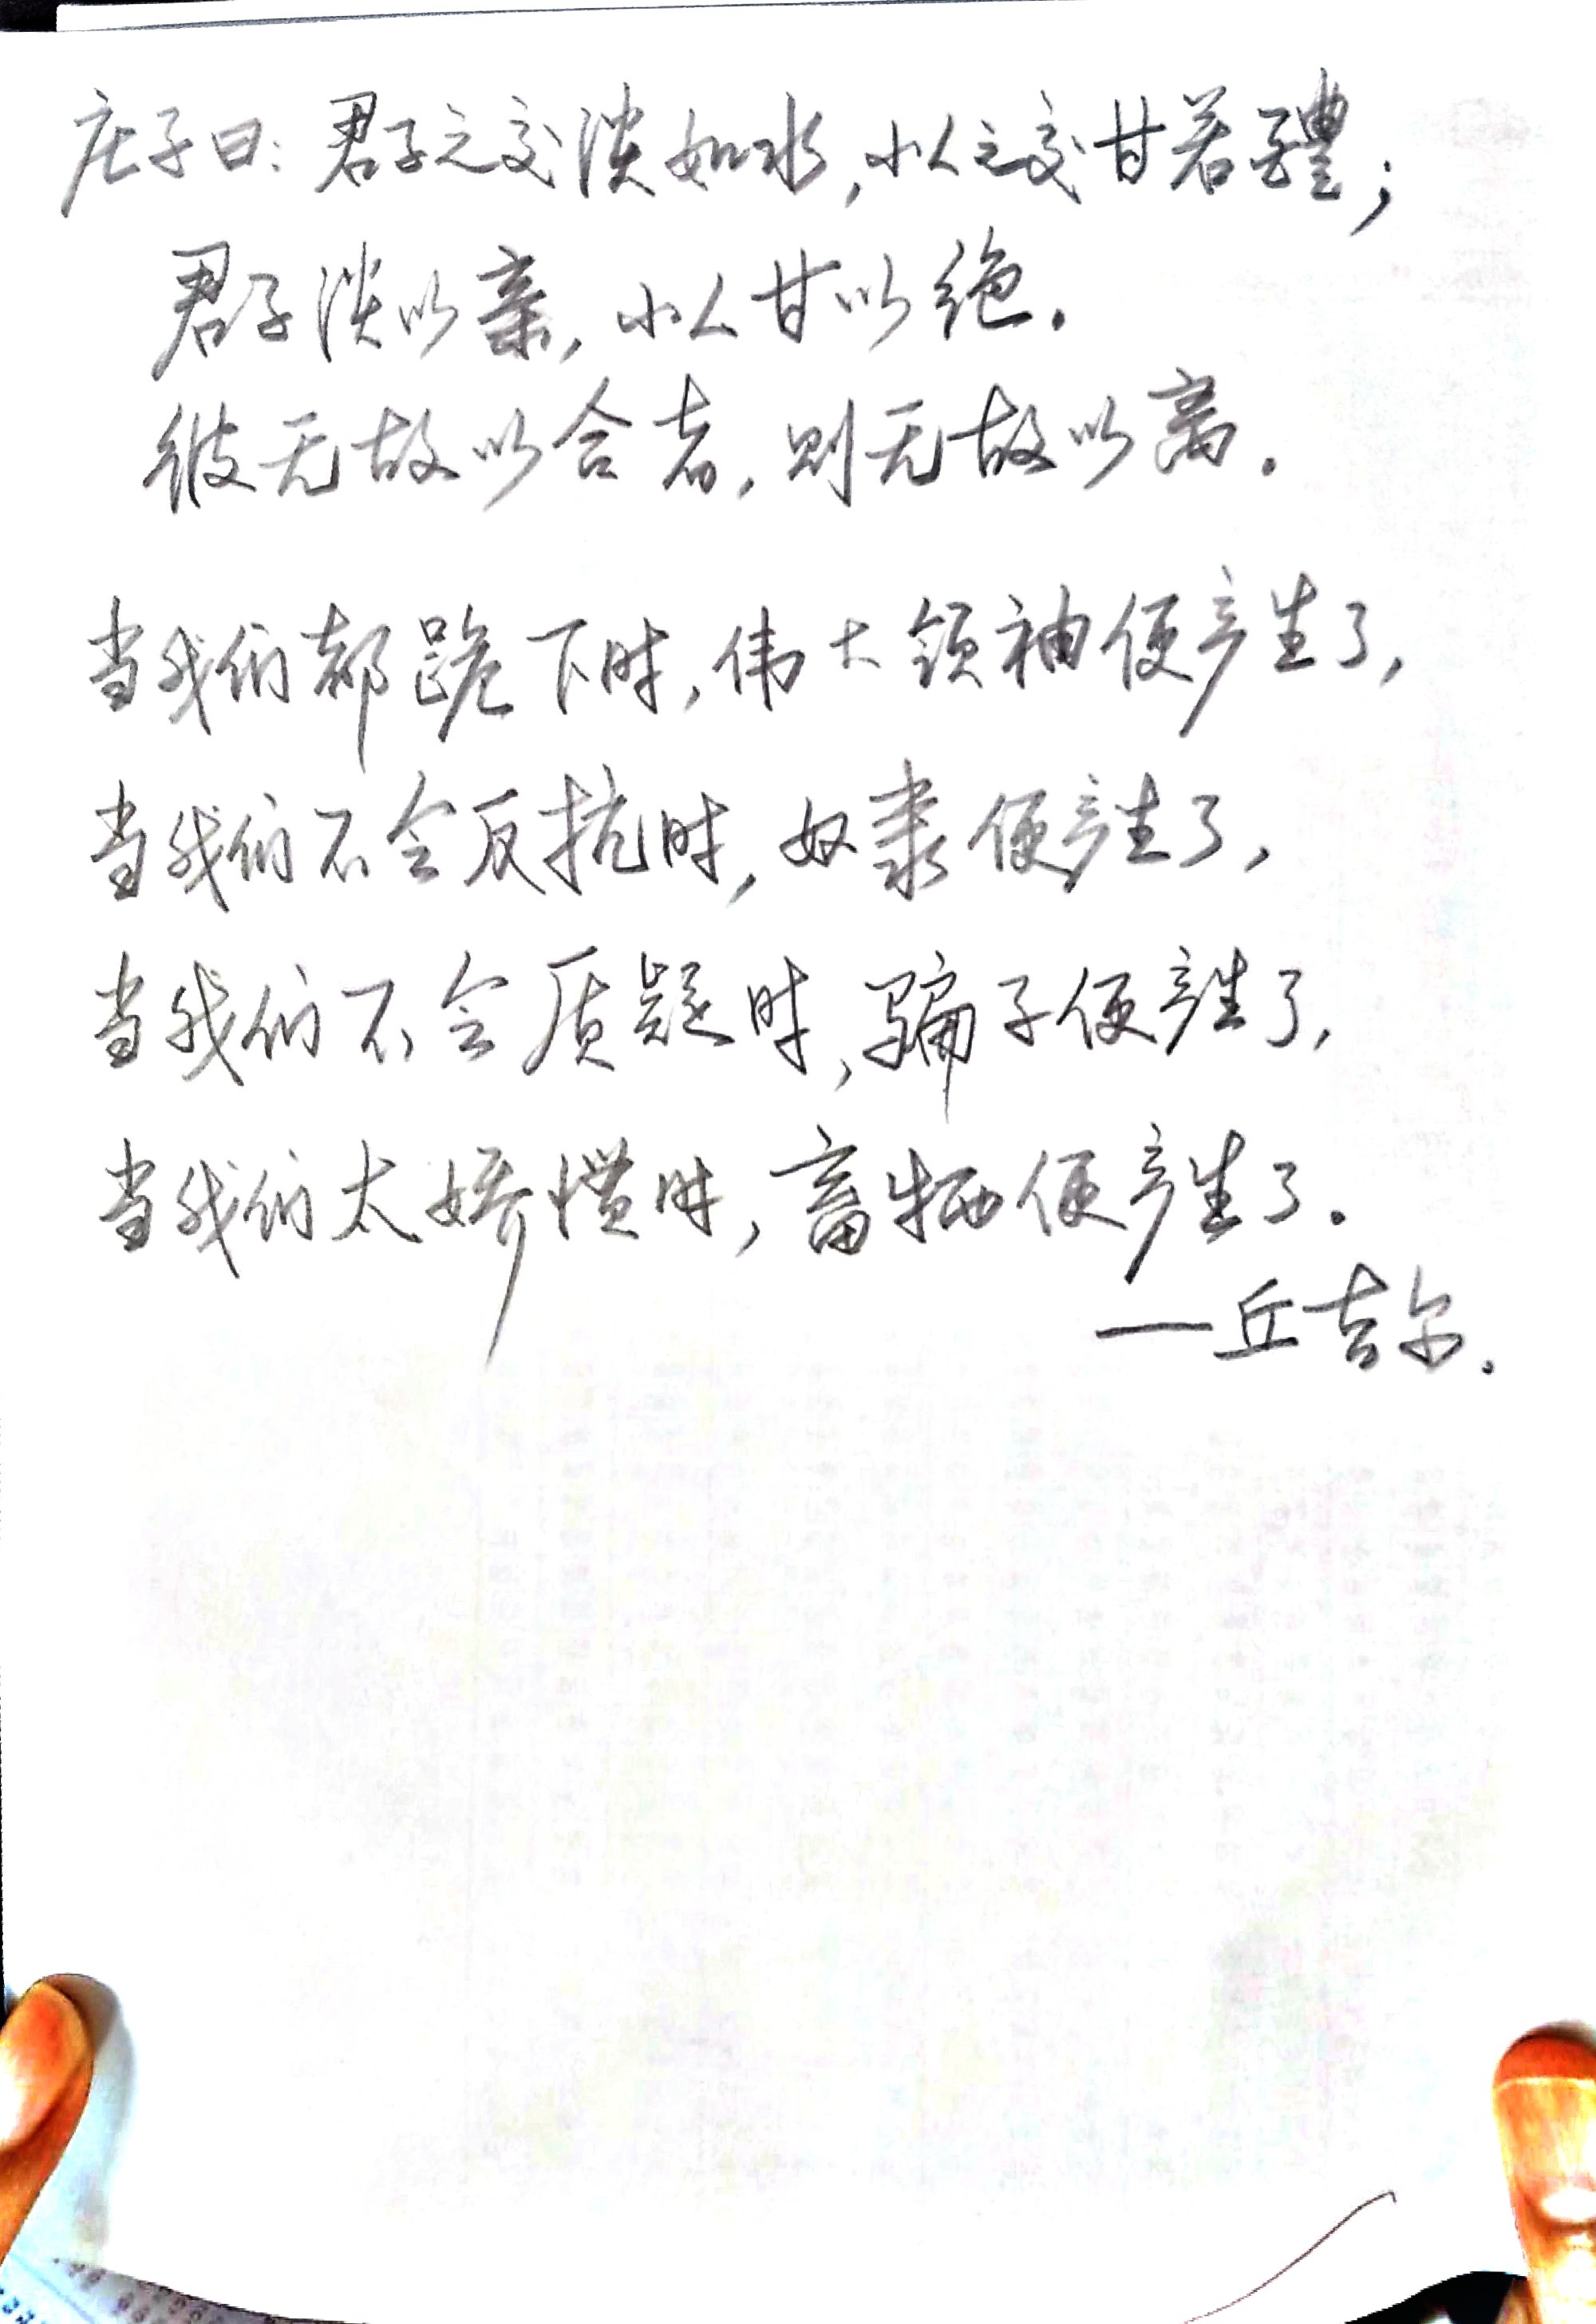 庄子曰：君子之交淡如水，小人之交甘若醴；
君子淡以亲，小人甘以绝．
彼无故以合者，则无故以离．
当我们都跪下时，伟大领袖便产生了，
当我们不会反抗时，奴隶便产生了，
当我们不会质疑时，骗子便产生了，
当我们太娇惯时，畜牲便产生了．
—丘吉尔．